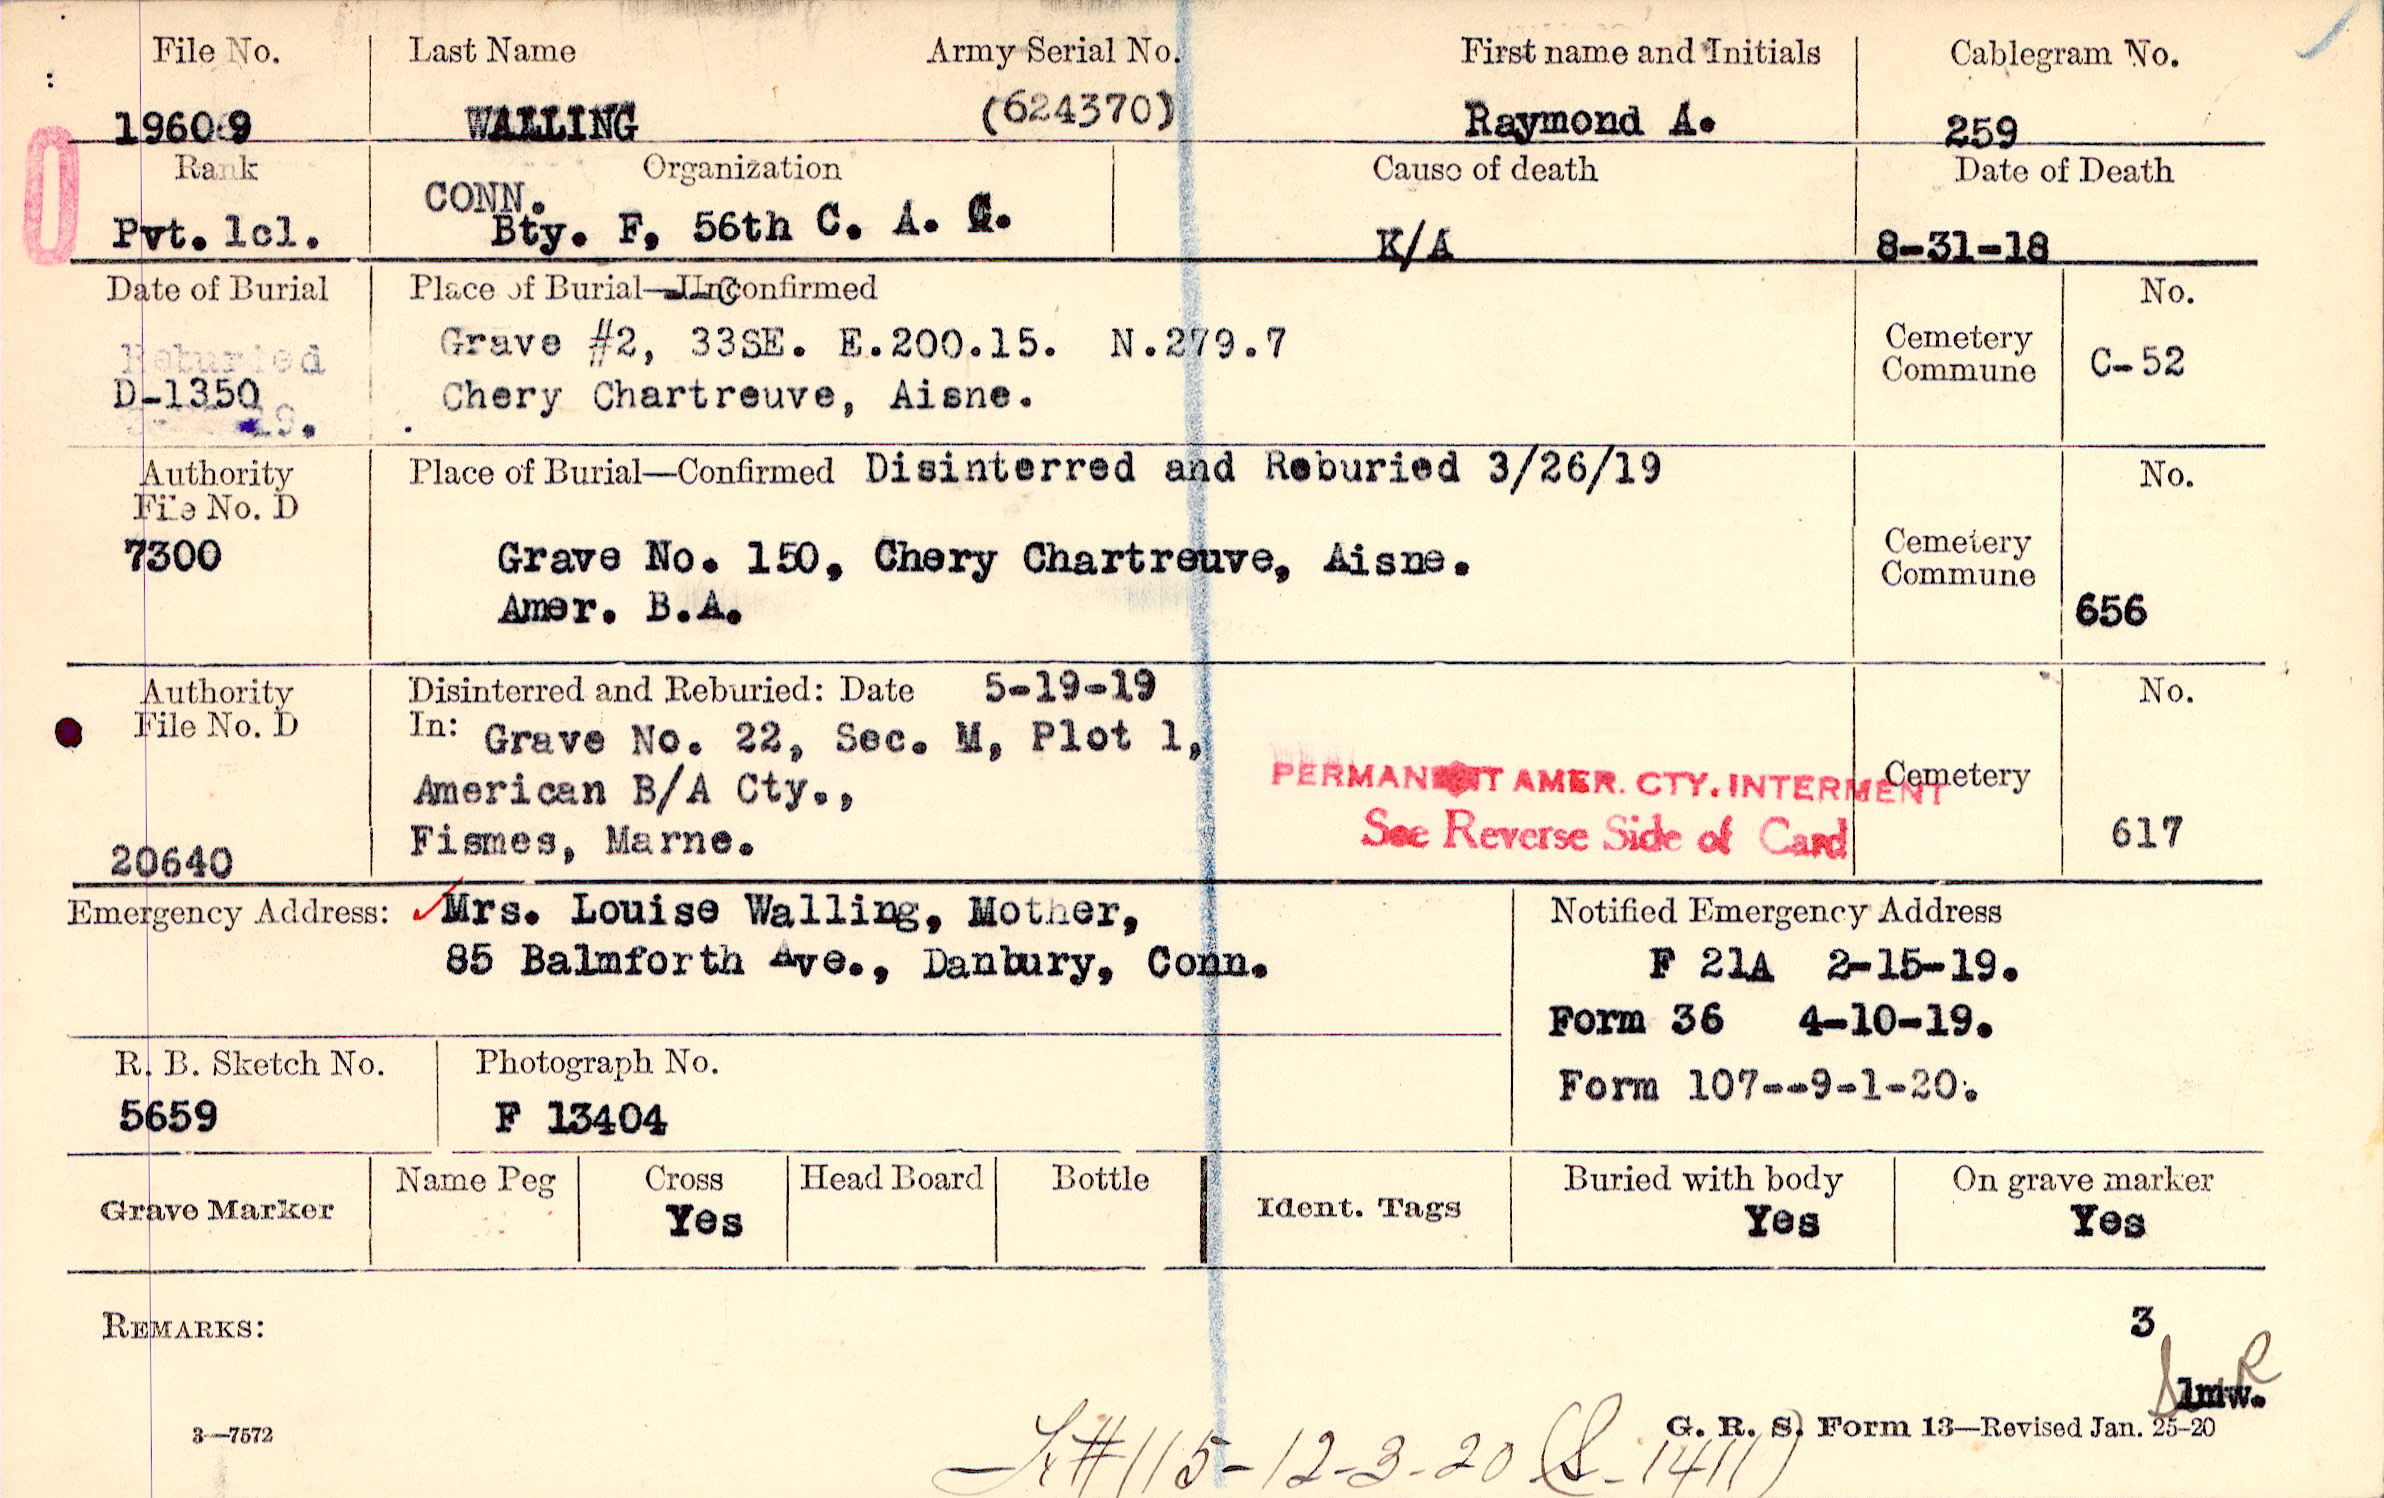 File No. Last Name Army Serial No. First name and Initials Cablegram No.
19609 WALLING (624370) Raymond A. 259
Rank Organization Cause of death Date of Death
CONN.
Pvt. 1cl. Bty. F, 56th C. A. C. K/A 8-31-18
Date of Burial Place of Burial—Unconfirmed No.
Reburied Grave #2, 33SE. E.200.15. N.279.7 Cemetery
D-1350 Chery Chartreuve, Aisne. Commune C-52
19.
Authority Place of Burial—Confirmed Disinterred and Reburied 3/26/19 No.
File No. D
7300 Grave No. 150, Chery Chartreuve, Aisne. Cemetery
Amer. B.A. Commune 656
Authority Disinterred and Reburied: Date 5-19-19 No.
File No. D In: Grave No. 22, Sec. M, Plot 1,
American B/A Cty., PERMANENT AMER. CTY. INTERMENT Cemetery
20640 Fismes, Marne. See Reverse Side of Card 617
Emergency Address: Mrs. Louise Walling, Mother, Notified Emergency Address
85 Balmforth Ave., Danbury, Conn. F 21A 2-15-19.
Form 36 4-10-19.
R. B. Sketch No. Photograph No. Form 107--9-1-20.
5659 F 13404
Grave Marker Name Peg Cross Head Board Bottle Ident. Tags Buried with body On grave marker
Yes Yes Yes
REMARKS: 3
lmw.
3—7572 G. R. S. Form 13—Revised Jan. 25-20
#115-12-3-20 (S-1411)